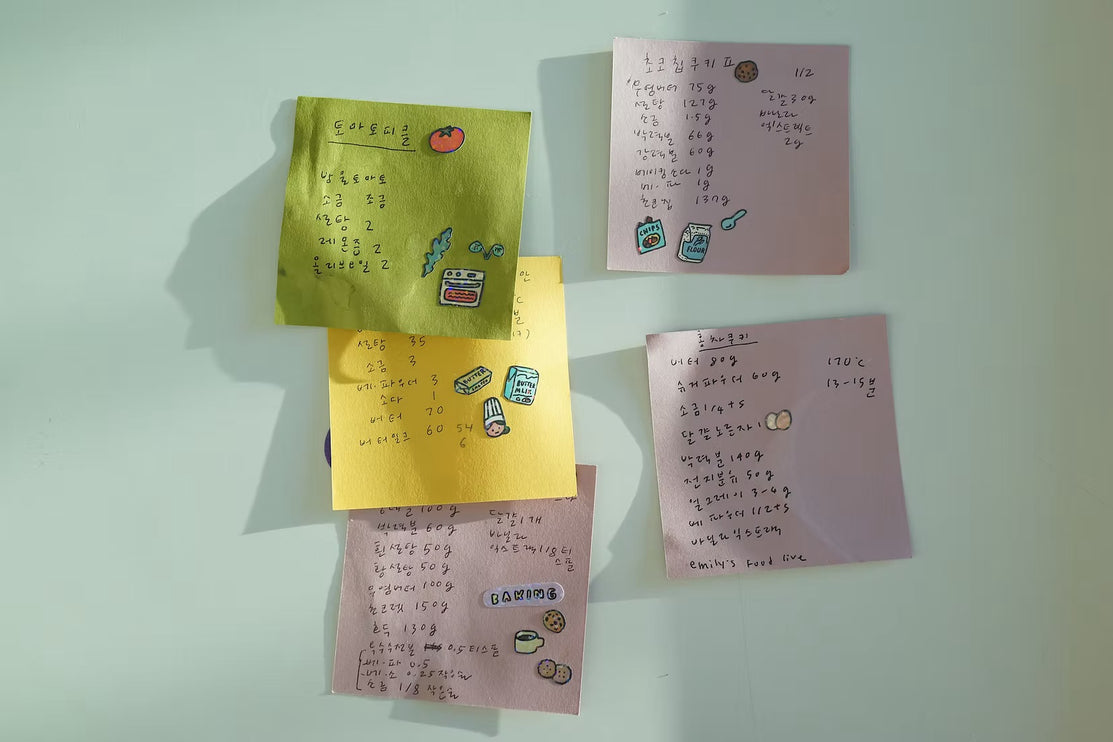 토마토피클
방울토마토
소금 조금
설탕 2
레몬즙 2
올리브오일 2
안
설탕 35
소금 3
베.파우더 3
소다 1
버터 70
버터밀크 60 54
6
BUTTER
BUTTER
MILK
100g
박력분 60g
흰설탕 50g
황설탕 50g
무염버터 100g
초코렛 150g
호두 130g
옥수수전분 0.5 티스푼
베.파 0.5
베.소 0.25 작은술
소금 1/8 작은술
달걀 1개
바닐라
엑스트랙 1/8 티
스푼
BAKING
초코칩쿠키 표
1/2
무염버터 75g
설탕 127g
소금 1.5g
박력분 66g
강력분 60g
베이킹소다 1g
베.파 1g
초코칩 137g
달걀 30g
바닐라
엑스트렉트
2g
CHIPS
FLOUR
홍차쿠키
버터 80g
슈거파우더 60g
소금 1/4 ts
달걀노른자 1
박력분 140g
전지분유 50g
얼그레이 3-4g
베.파우더 1/2 ts
바닐라익스트랙
emily's Food live
170°C
13-15분